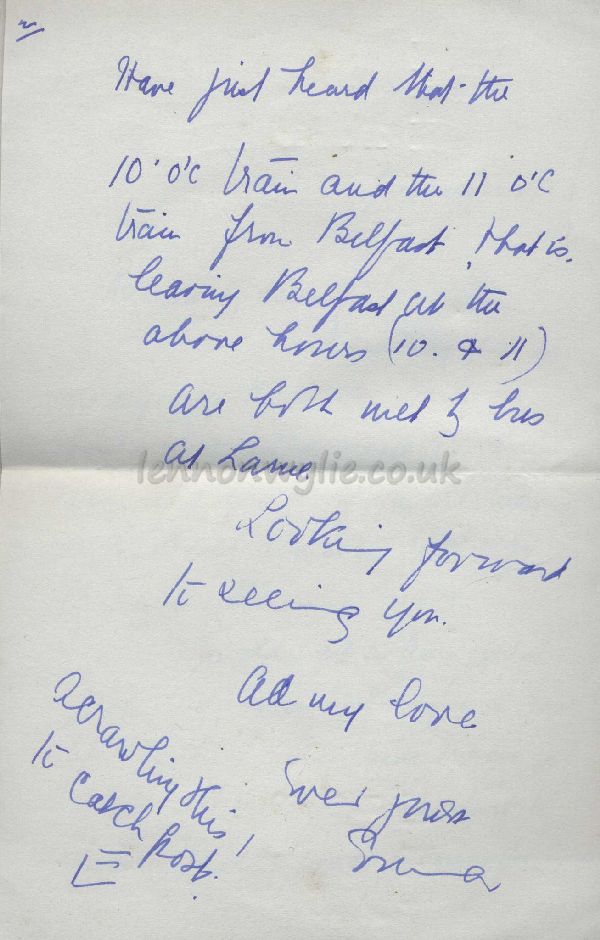 2/
Have just heard that the
10 o'c train and the 11 o'c
train from Belfast, that is,
leaving Belfast at the
above hours (10. & 11)
are both met by bus
at Larne.
lennonwylie.co.uk
Looking forward
to seeing you.
All my love
Ever yours
Scrawling this
to catch post.